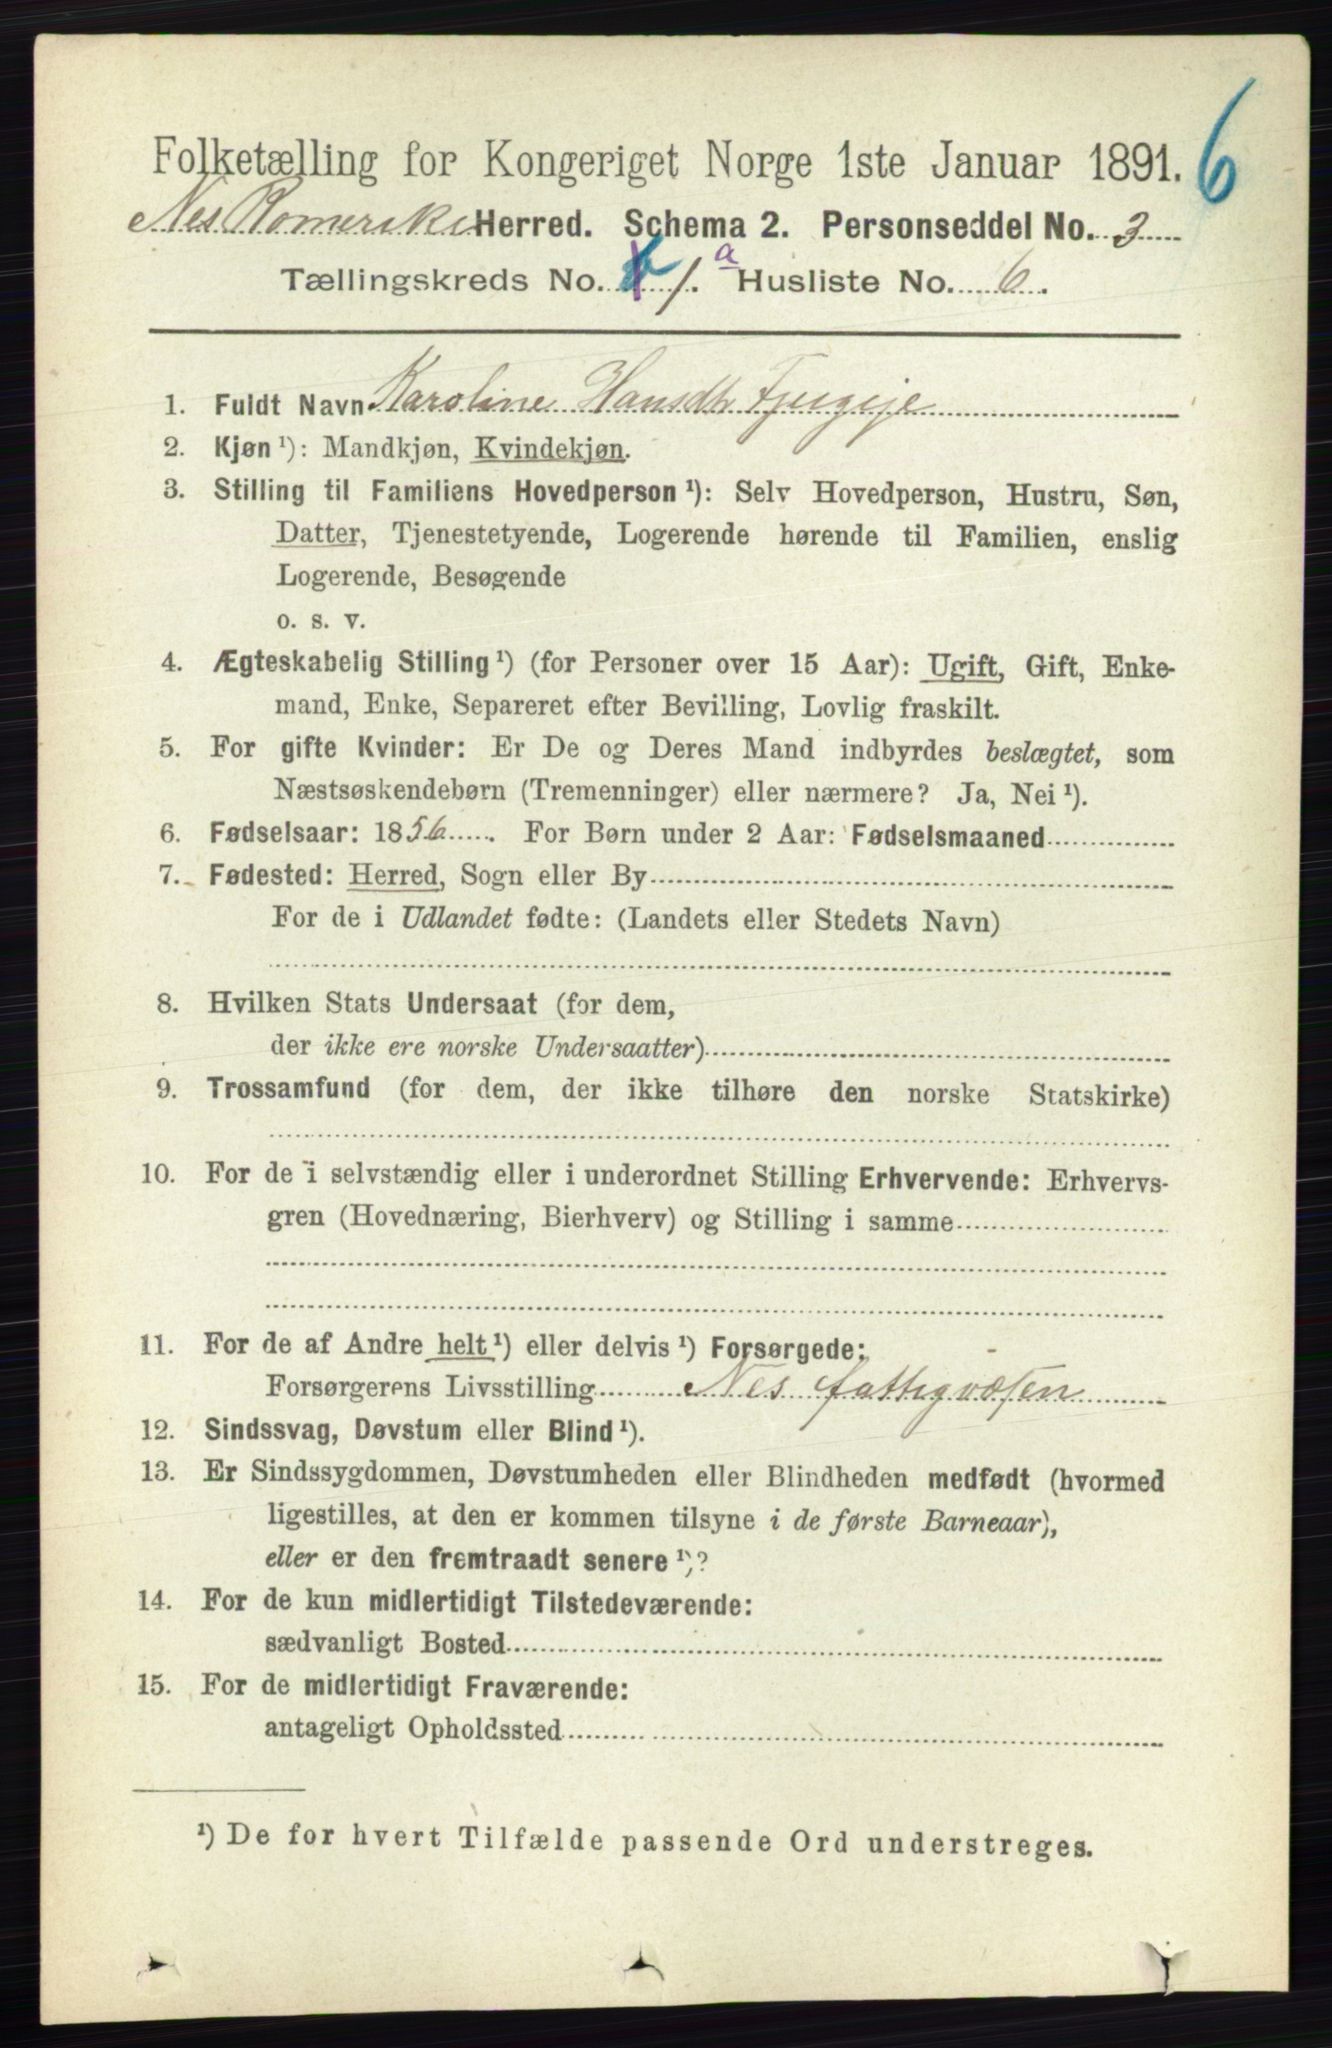 6
Folketælling for Kongeriget Norge 1ste Januar 1891.
Nes Romerike Herred. Schema 2. Personseddel No. 3
Tællingskreds No. 1. a Husliste No. 6.
1. Fuldt Navn Karoline Hansdtr
2. Kjøn ¹): Mandkjøn, Kvindekjøn.
3. Stilling til Familiens Hovedperson ¹): Selv Hovedperson, Hustru, Søn,
Datter, Tjenestetyende, Logerende hørende til Familien, enslig
Logerende, Besøgende
o. s. v.
4. Ægteskabelig Stilling ¹) (for Personer over 15 Aar): Ugift, Gift, Enke-
mand, Enke, Separeret efter Bevilling, Lovlig fraskilt.
5. For gifte Kvinder: Er De og Deres Mand indbyrdes beslægtet, som
Næstsøskendebørn (Tremenninger) eller nærmere? Ja, Nei ¹).
6. Fødselsaar: 1856. For Børn under 2 Aar: Fødselsmaaned
7. Fødested: Herred, Sogn eller By
For de i Udlandet fødte: (Landets eller Stedets Navn)
8. Hvilken Stats Undersaat (for dem,
der ikke ere norske Undersaatter)
9. Trossamfund (for dem, der ikke tilhøre den norske Statskirke)
10. For de i selvstændig eller i underordnet Stilling Erhvervende: Erhvervs-
gren (Hovednæring, Bierhverv) og Stilling i samme
11. For de af Andre helt ¹) eller delvis ¹) Forsørgede:
Forsørgerens Livsstilling Nes fattigvæsen
12. Sindssvag, Døvstum eller Blind ¹).
13. Er Sindssygdommen, Døvstumheden eller Blindheden medfødt (hvormed
ligestilles, at den er kommen tilsyne i de første Barneaar),
eller er den fremtraadt senere ¹)?
14. For de kun midlertidigt Tilstedeværende:
sædvanligt Bosted
15. For de midlertidigt Fraværende:
antageligt Opholdssted
¹) De for hvert Tilfælde passende Ord understreges.